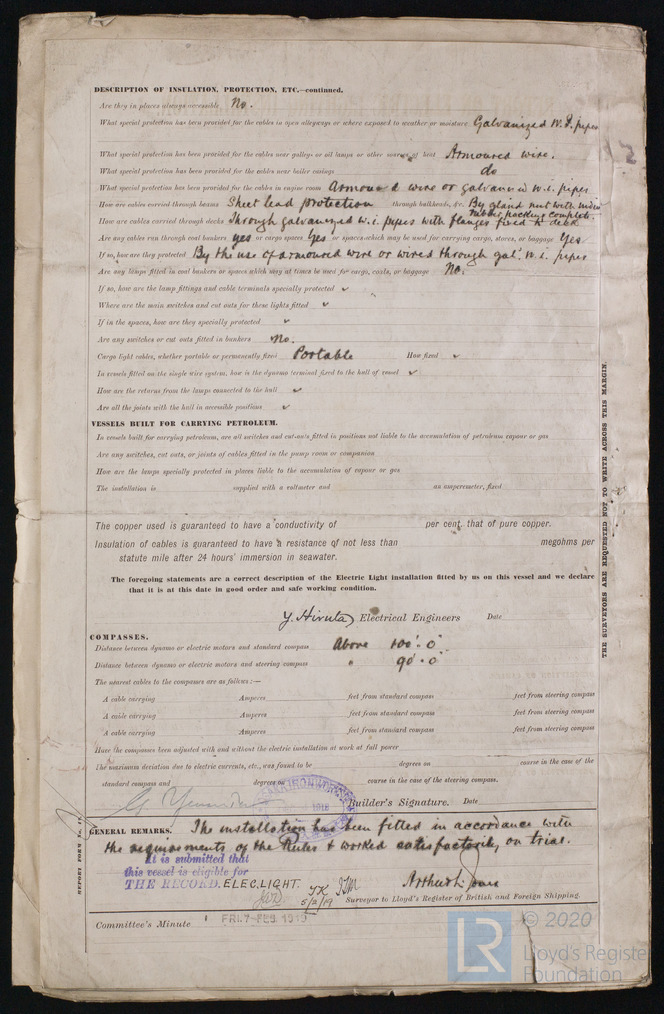 DESCRIPTION OF INSULATION, PROTECTION, ETC.—continued.
Are they in places always accessible No.
What special protection has been provided for the cables in open alleyways or where exposed to weather or moisture Galvanized W.I. pipes
What special protection has been provided for the cables near galleys or oil lamps or other sources of heat Armoured wire.
What special protection has been provided for the cables near boiler casings do
What special protection has been provided for the cables in engine room Armoured wire or galvanized w.i. pipes
How are cables carried through beams Sheet lead protection through bulkheads, &c. By gland nut with rubber packing complete.
How are cables carried through decks Through galvanized w.i. pipes with flanges fixed to deck
Are any cables run through coal bunkers yes or cargo spaces Yes or spaces which may be used for carrying cargo, stores, or baggage Yes.
If so, how are they protected By the use of armoured wire or wired through gal. w.i. pipes
Are any lamps fitted in coal bunkers or spaces which may at times be used for cargo, coals, or baggage No.
If so, how are the lamp fittings and cable terminals specially protected ✓
Where are the main switches and cut outs for these lights fitted ✓
If in the spaces, how are they specially protected ✓
Are any switches or cut outs fitted in bunkers No.
Cargo light cables, whether portable or permanently fixed Portable How fixed ✓
In vessels fitted on the single wire system, how is the dynamo terminal fixed to the hull of vessel ✓
How are the returns from the lamps connected to the hull ✓
Are all the joints with the hull in accessible positions ✓
VESSELS BUILT FOR CARRYING PETROLEUM.
In vessels built for carrying petroleum, are all switches and cut-outs fitted in positions not liable to the accumulation of petroleum vapour or gas
Are any switches, cut outs, or joints of cables fitted in the pump room or companion
How are the lamps specially protected in places liable to the accumulation of vapour or gas
The installation is supplied with a voltmeter and an amperemeter, fixed
The copper used is guaranteed to have a conductivity of per cent. that of pure copper.
Insulation of cables is guaranteed to have a resistance of not less than megohms per
statute mile after 24 hours' immersion in seawater.
The foregoing statements are a correct description of the Electric Light installation fitted by us on this vessel and we declare
that it is at this date in good order and safe working condition.
Y. Hiruta Electrical Engineers Date
COMPASSES.
Distance between dynamo or electric motors and standard compass Above 100'. 0"
Distance between dynamo or electric motors and steering compass " 90'. 0"
The nearest cables to the compasses are as follows:—
A cable carrying Amperes feet from standard compass feet from steering compass
A cable carrying Amperes feet from standard compass feet from steering compass
A cable carrying Amperes feet from standard compass feet from steering compass
Have the compasses been adjusted with and without the electric installation at work at full power
The maximum deviation due to electric currents, etc., was found to be degrees on course in the case of the
standard compass and degrees on course in the case of the steering compass.
Builder's Signature. Date
GENERAL REMARKS. The installation has been fitted in accordance with
the requirements of the Rules & worked satisfactorily on trial.
It is submitted that
this vessel is eligible for
THE RECORD. ELEC. LIGHT.
5/2/19
Arthur L. Jones
Surveyor to Lloyd's Register of British and Foreign Shipping.
Committee's Minute FRI. 7-FEB. 1919
THE SURVEYORS ARE REQUESTED NOT TO WRITE ACROSS THIS MARGIN.
© 2020
LR
Lloyd's Register
Foundation